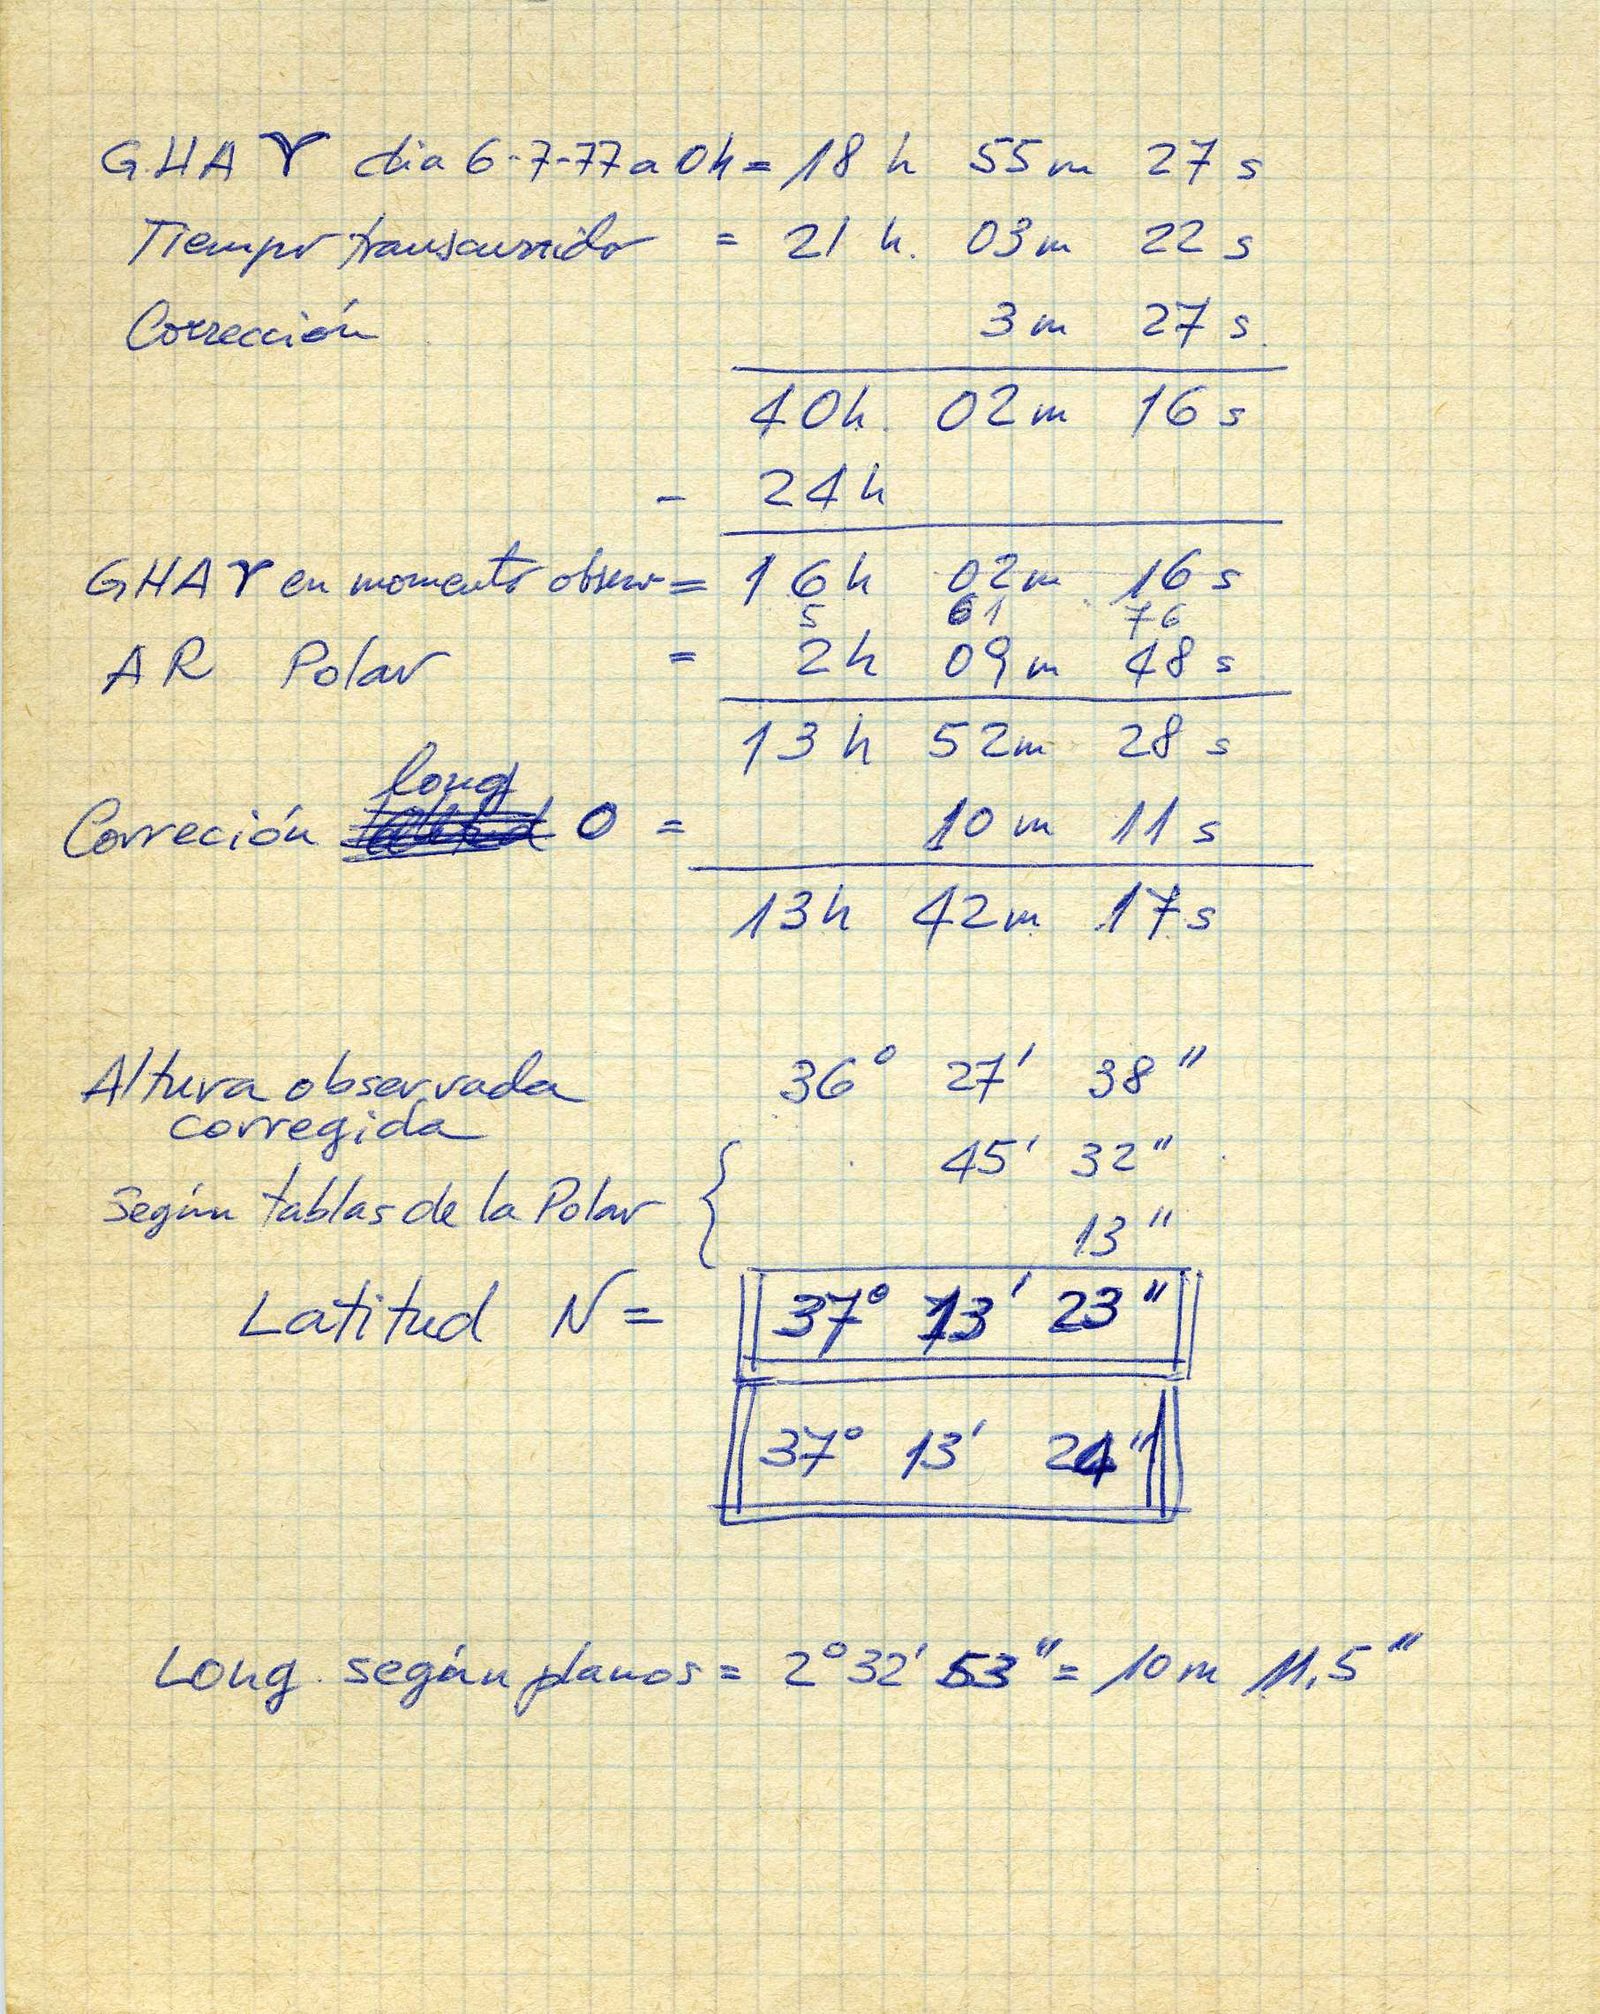 GHA ♈ dia 6-7-77 a 0h = 18 h 55 m 27 s
Tiempo transcurrido = 21 h. 03 m 22 s
Corrección 3 m 27 s.
40 h. 02 m 16 s
- 24 h
GHA ♈ en momento observ = 16 h 02 m 16 s
5 61 76
AR Polar = 2 h 09 m 48 s
13 h 52 m 28 s
long
Correción O = 10 m 11 s
13 h 42 m 17 s
Altura observada 36° 27' 38"
corregida
45' 32"
Según tablas de la Polar {
13"
Latitud N = 37° 13' 23"
37° 13' 24"
Long. según planos = 2° 32' 53" = 10 m 11,5"